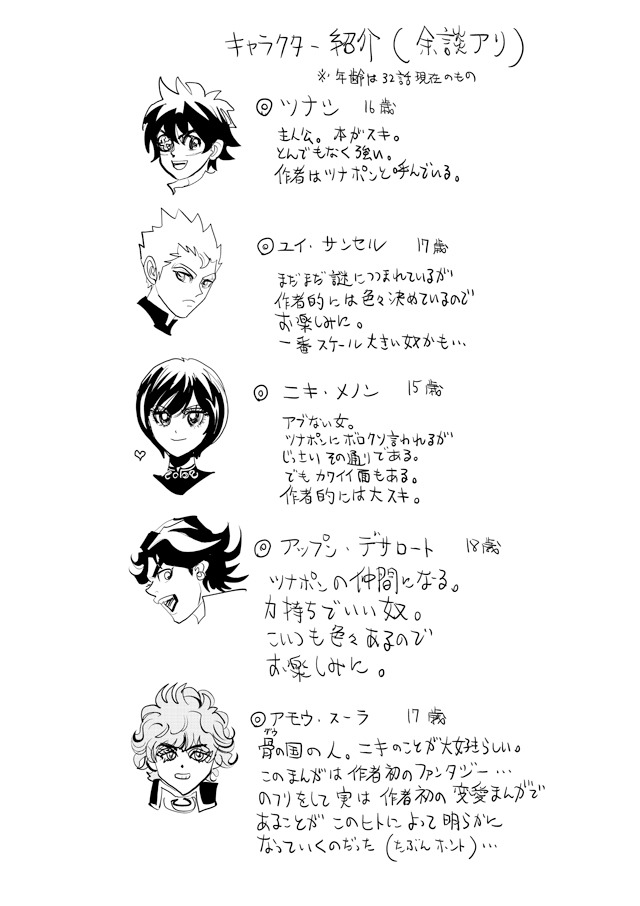 キャラクター紹介(余談アリ)
※年齢は32話現在のもの
◎ツナシ 16歳
主人公。本がスキ。
とんでもなく強い。
作者はツナポンと呼んでいる。
◎ユイ・サンセル 17歳
まだまだ謎につつまれているが
作者的には色々決めているので
お楽しみに。
一番スケール大きい奴かも…
◎ニキ・メノン 15歳
アブない女。
ツナポンにボロクソ言われるが
じっさいその通りである。
でもカワイイ面もある。
作者的には大スキ。
◎アップン・デサロート 18歳
ツナポンの仲間になる。
力持ちでいい奴。
こいつも色々あるので
お楽しみに。
◎アモウ・スーラ 17歳
骨の国の人。ニキのことが大好きらしい。
このまんがは作者初のファンタジー…
のフリをして実は作者初の変愛まんがで
あることがこのヒトによって明らかに
なっていくのだった(たぶんホント)…